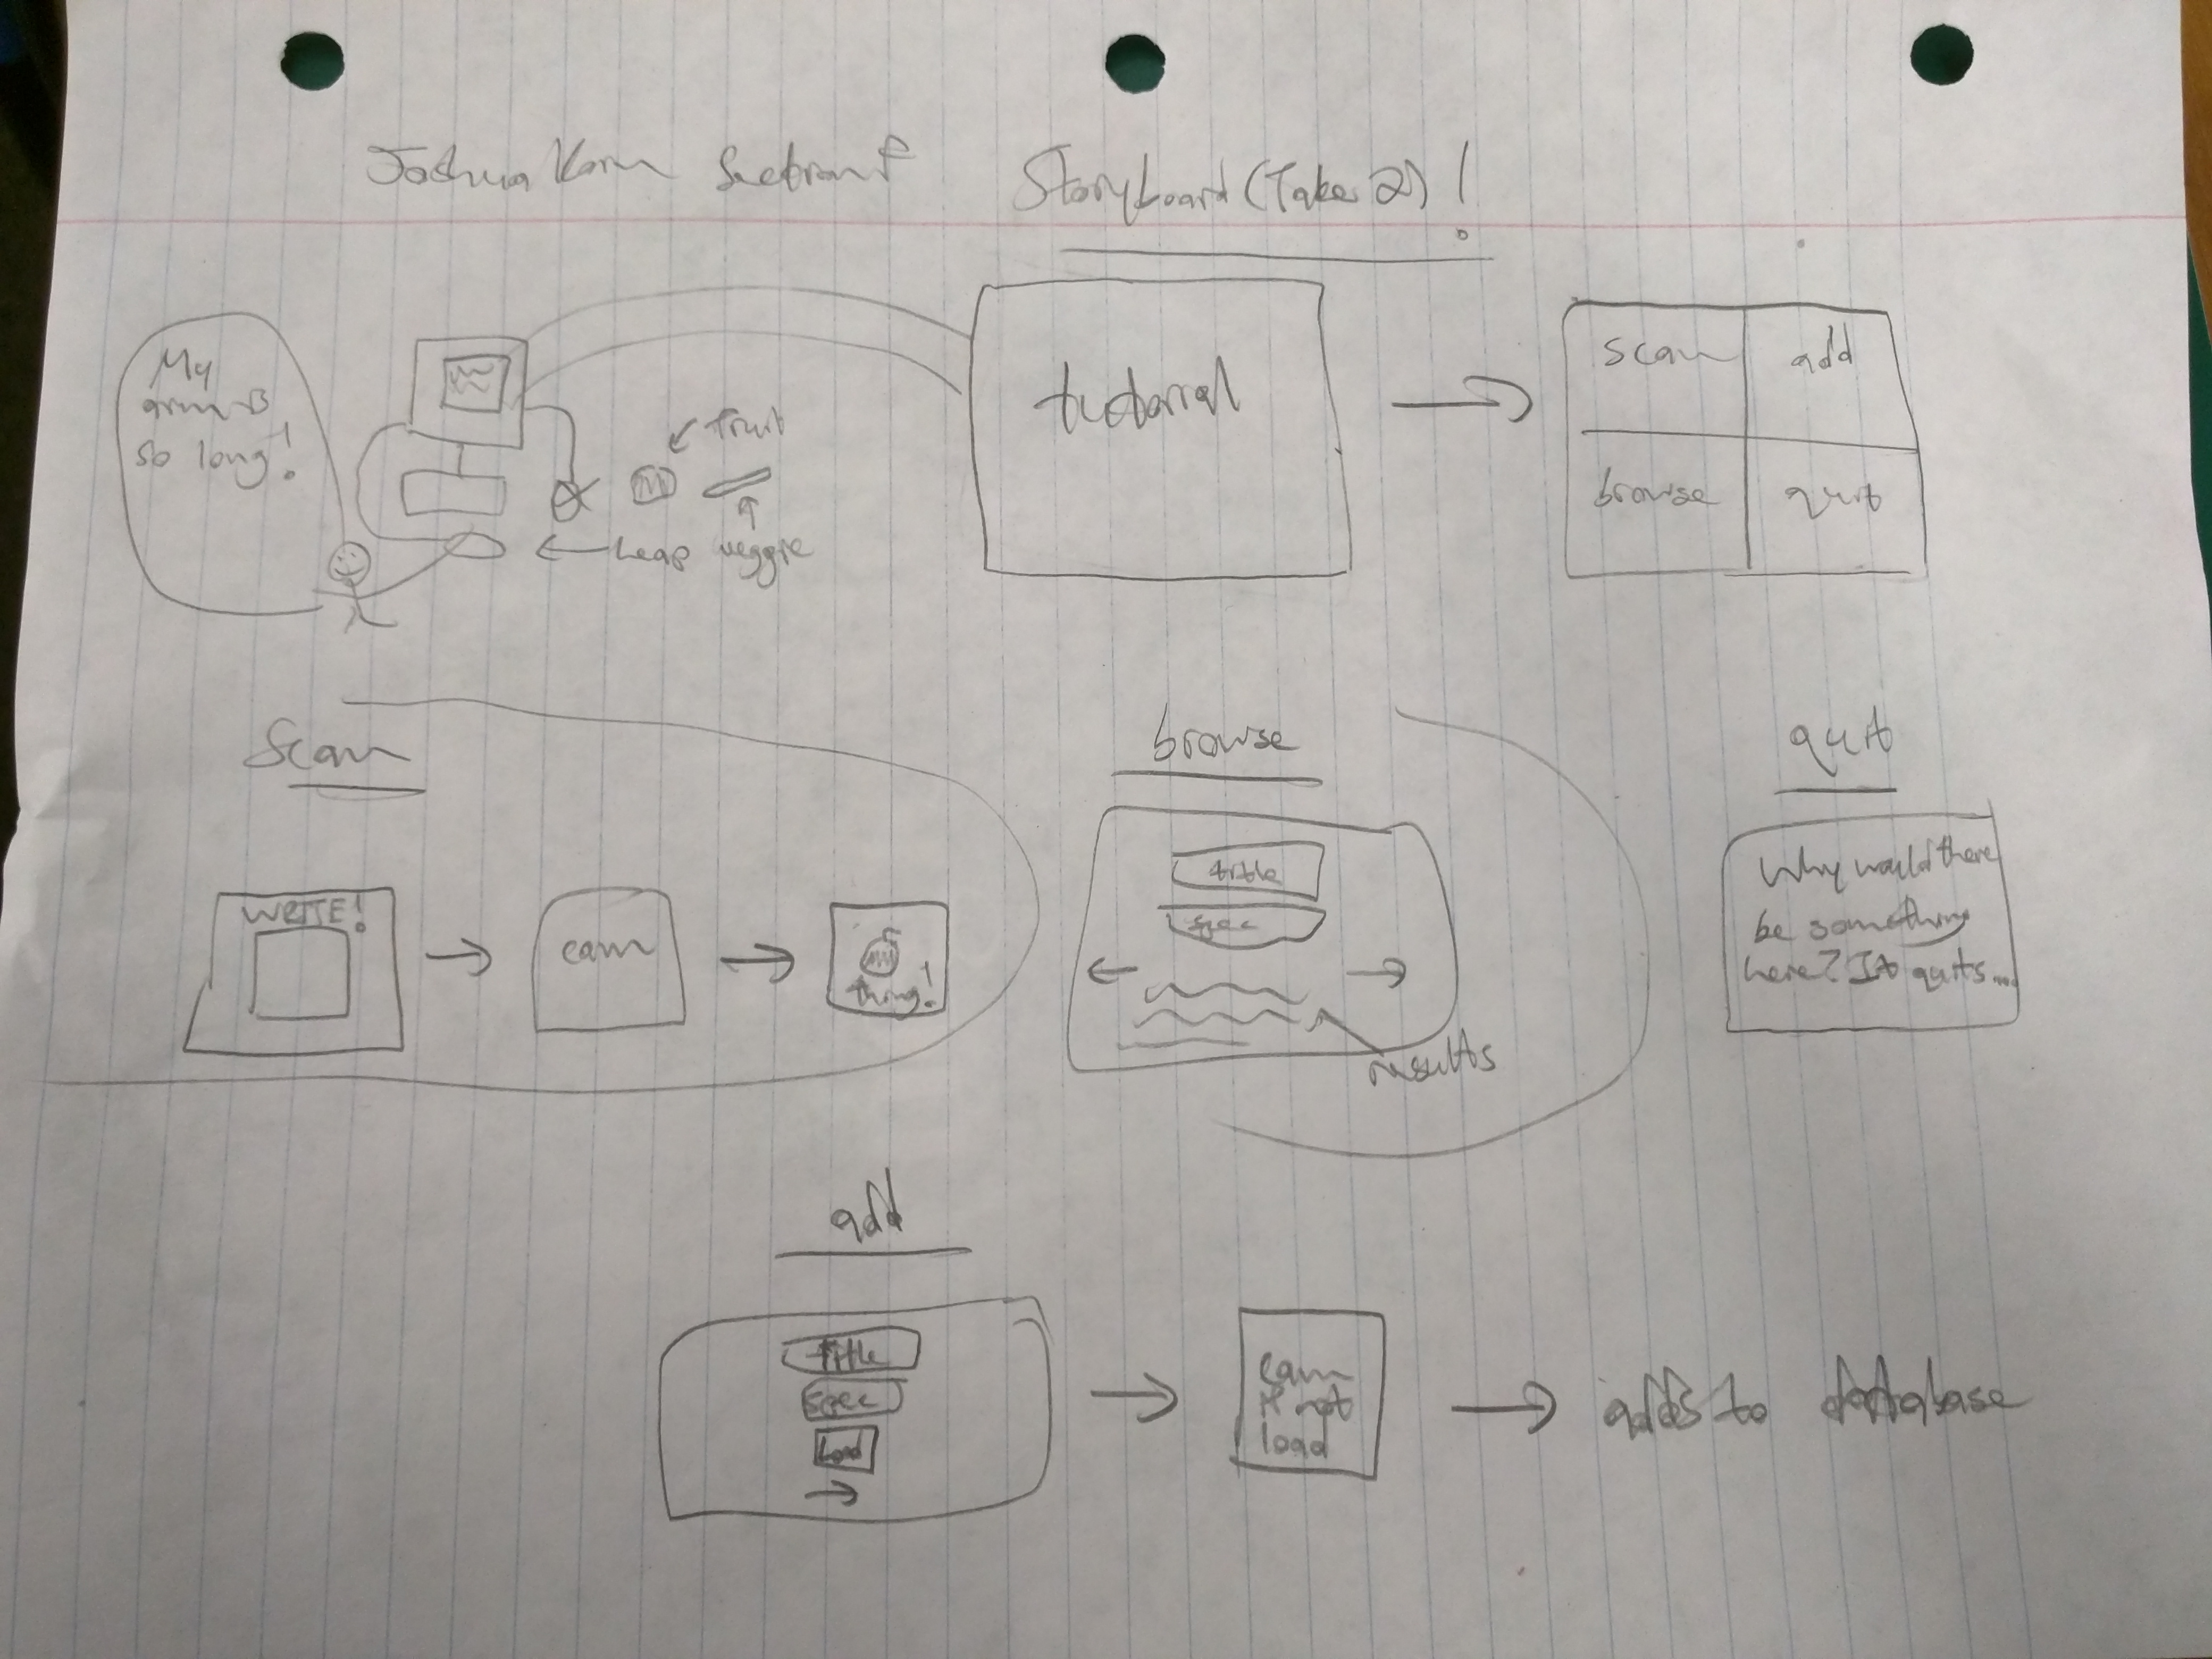 Joshua Storyboard (Take 2)!
My
arm is
so long!
fruit
Leap veggie
tutorial
scan add
browse quit
Scan
WRITE!
cam
thing!
browse
title
spec
results
quit
Why would there
be something
here? It quits...
add
title
spec
Load
cam
if not
load
adds to database